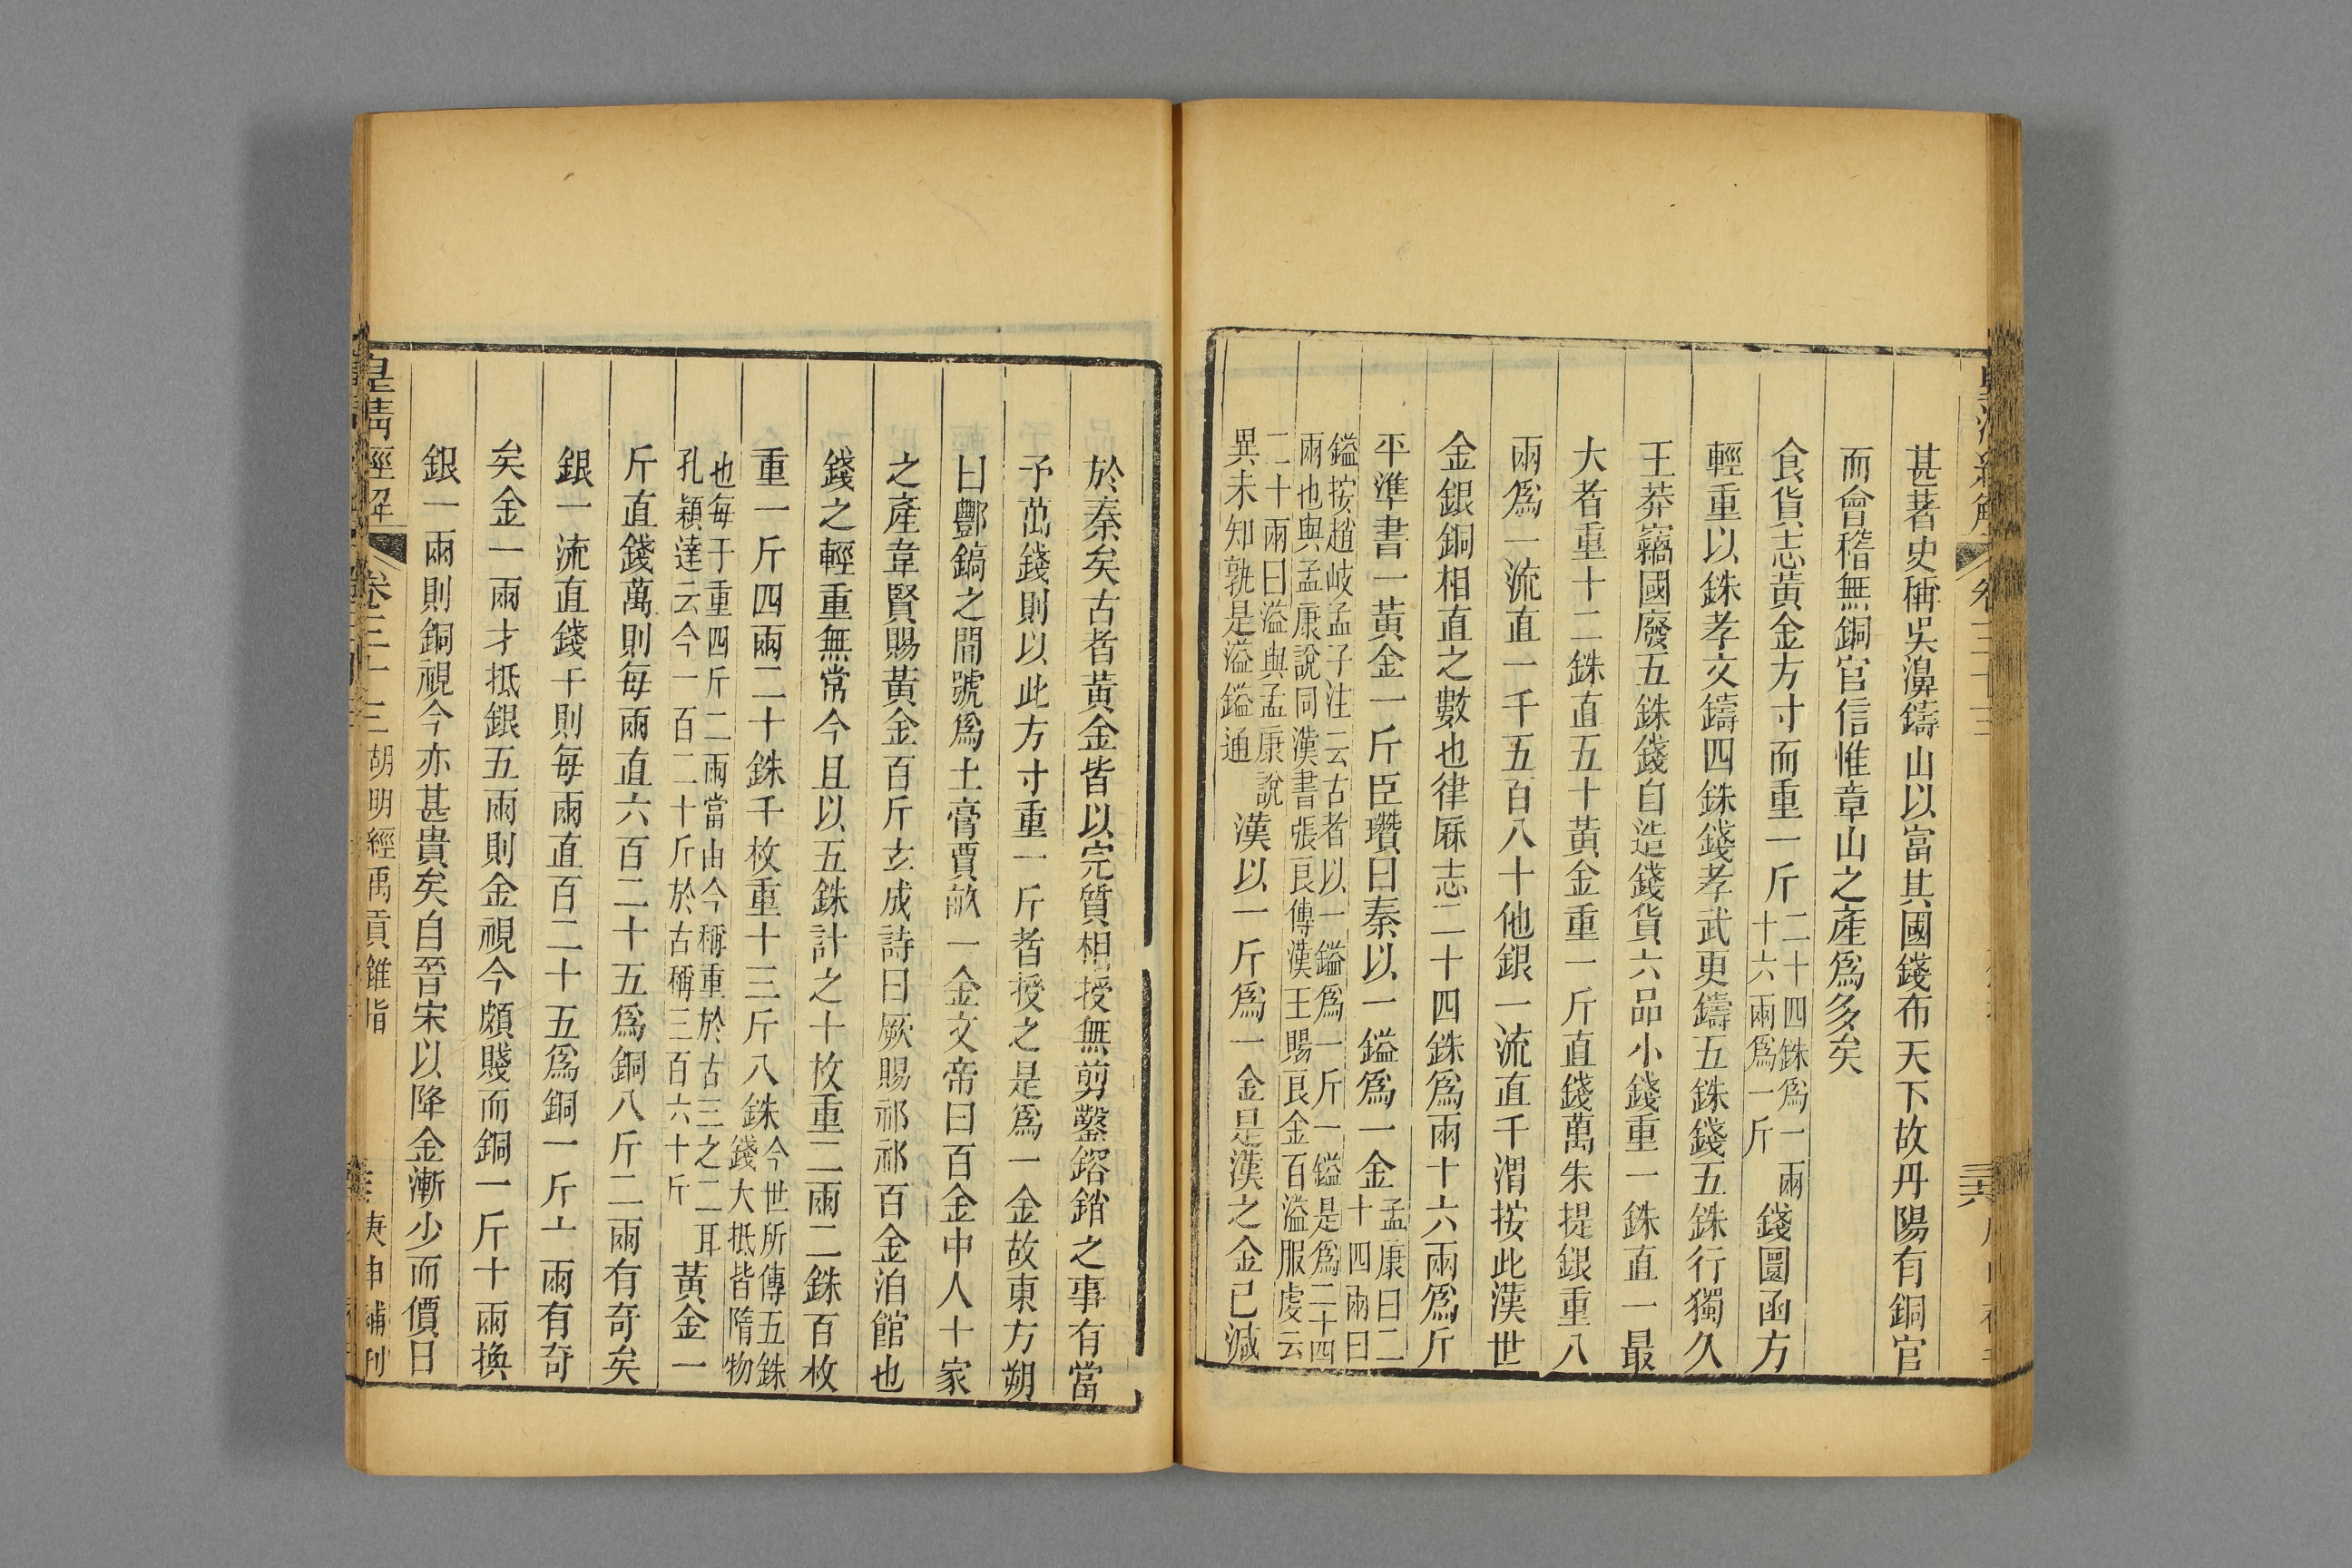 甚著史稱吳濞鑄山以富其國錢布天下故丹陽有銅官
而會稽無銅官信惟章山之產爲多矣
食貨志黃金方寸而重一斤二十四銖爲一兩十六兩爲一斤錢圜函方
輕重以銖孝文鑄四銖錢孝武更鑄五銖錢五銖行獨久
王莽竊國廢五銖錢自造錢貨六品小錢重一銖直一最
大者重十二銖直五十黃金重一斤直錢萬朱提銀重八
兩爲一流直一千五百八十他銀一流直千渭按此漢世
金銀銅相直之數也律厤志二十四銖爲兩十六兩爲斤
平準書一黃金一斤臣瓚曰秦以一鎰爲一金孟康曰二十四兩曰
鎰按趙岐孟子注云古者以一鎰爲一斤一鎰是爲二十四
兩也與孟康說同漢書張良傳漢王賜良金百溢服虔云
二十兩曰溢與孟康說
異未知孰是溢鎰通漢以一斤爲一金是漢之金已減
於秦矣古者黃金皆以完質相授無剪鑿鎔銷之事有當
予萬錢則以此方寸重一斤者授之是爲一金故東方朔
曰酆鎬之間號爲土膏賈畝一金文帝曰百金中人十家
之產韋賢賜黃金百斤玄成詩曰厥賜祁祁百金洎館也
錢之輕重無常今且以五銖計之十枚重二兩二銖百枚
重一斤四兩二十銖千枚重十三斤八銖今世所傳五銖錢大抵皆隋物
也每千重四斤二兩當由今稱重於古三之二耳
孔穎達云今一百二十斤於古稱三百六十斤黃金一
斤直錢萬則每兩直六百二十五爲銅八斤二兩有奇矣
銀一流直錢千則每兩直百二十五爲銅一斤十兩有奇
矣金一兩才抵銀五兩則金視今頗賤而銅一斤十兩換
銀一兩則銅視今亦甚貴矣自晉宋以降金漸少而價日
皇清經解 卷三十三 胡明經禹貢錐指 庚申補刊